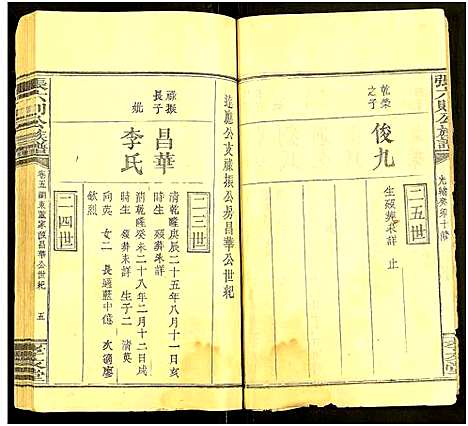 張六則公族譜
光緒癸卯十修
孝友堂
二五世
乾榮
之子
俊九
生歿葬未詳 止
達應公支祿振公房昌華公世紀
二三世
祿振
長子
昌華
妣
李氏
清乾隆庚辰二十五年八月十一日亥
時生 歿葬未詳 生子二 清英
清乾隆癸未二十八年二月十二日戌
時生 歿葬未詳
尚英 女二 長適藍中億 次適廖
欽烈
二四世
張六則公族譜
卷五
昌華公世紀
五
孝友堂